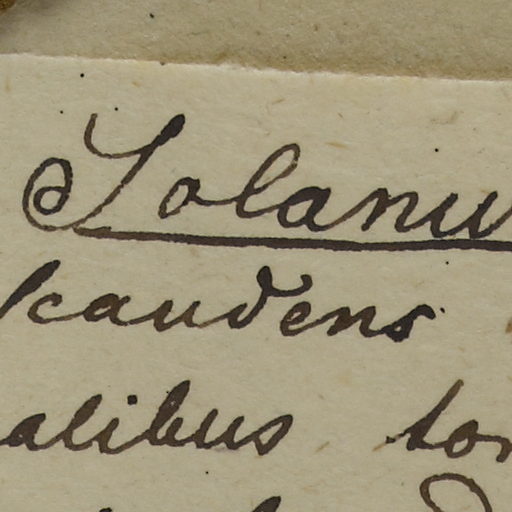 Solanu
scandens
alibus tor